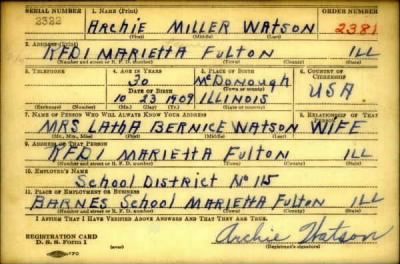 SERIAL NUMBER 1. NAME (Print) ORDER NUMBER
2322 ARCHIE MILLER WATSON 2381
(First) (Middle) (Last)
2. ADDRESS (Print)
RFD1 MARIETTA Fulton ILL
(Number and street or R. F. D. number) (Town) (County) (State)
3. TELEPHONE 4. AGE IN YEARS 5. PLACE OF BIRTH 6. COUNTRY OF CITIZENSHIP
30 McDonough
DATE OF BIRTH (Town or county)
10 23 1909 ILLINOIS USA
(Exchange) (Number) (Mo.) (Day) (Yr.) (State or country)
7. NAME OF PERSON WHO WILL ALWAYS KNOW YOUR ADDRESS 8. RELATIONSHIP OF THAT PERSON
MRS LATHA BERNICE WATSON WIFE
(Mr., Mrs., Miss) (First) (Middle) (Last)
9. ADDRESS OF THAT PERSON
RFD1 MARIETTA Fulton ILL
(Number and street or R. F. D. number) (Town) (County) (State)
10. EMPLOYER'S NAME
School District No 115
11. PLACE OF EMPLOYMENT OR BUSINESS
BARNES School MARIETTA Fulton ILL
(Number and street or R. F. D. number) (Town) (County) (State)
I AFFIRM THAT I HAVE VERIFIED ABOVE ANSWERS AND THAT THEY ARE TRUE.
REGISTRATION CARD
D. S. S. Form 1 Archie Watson
(Registrant's signature)